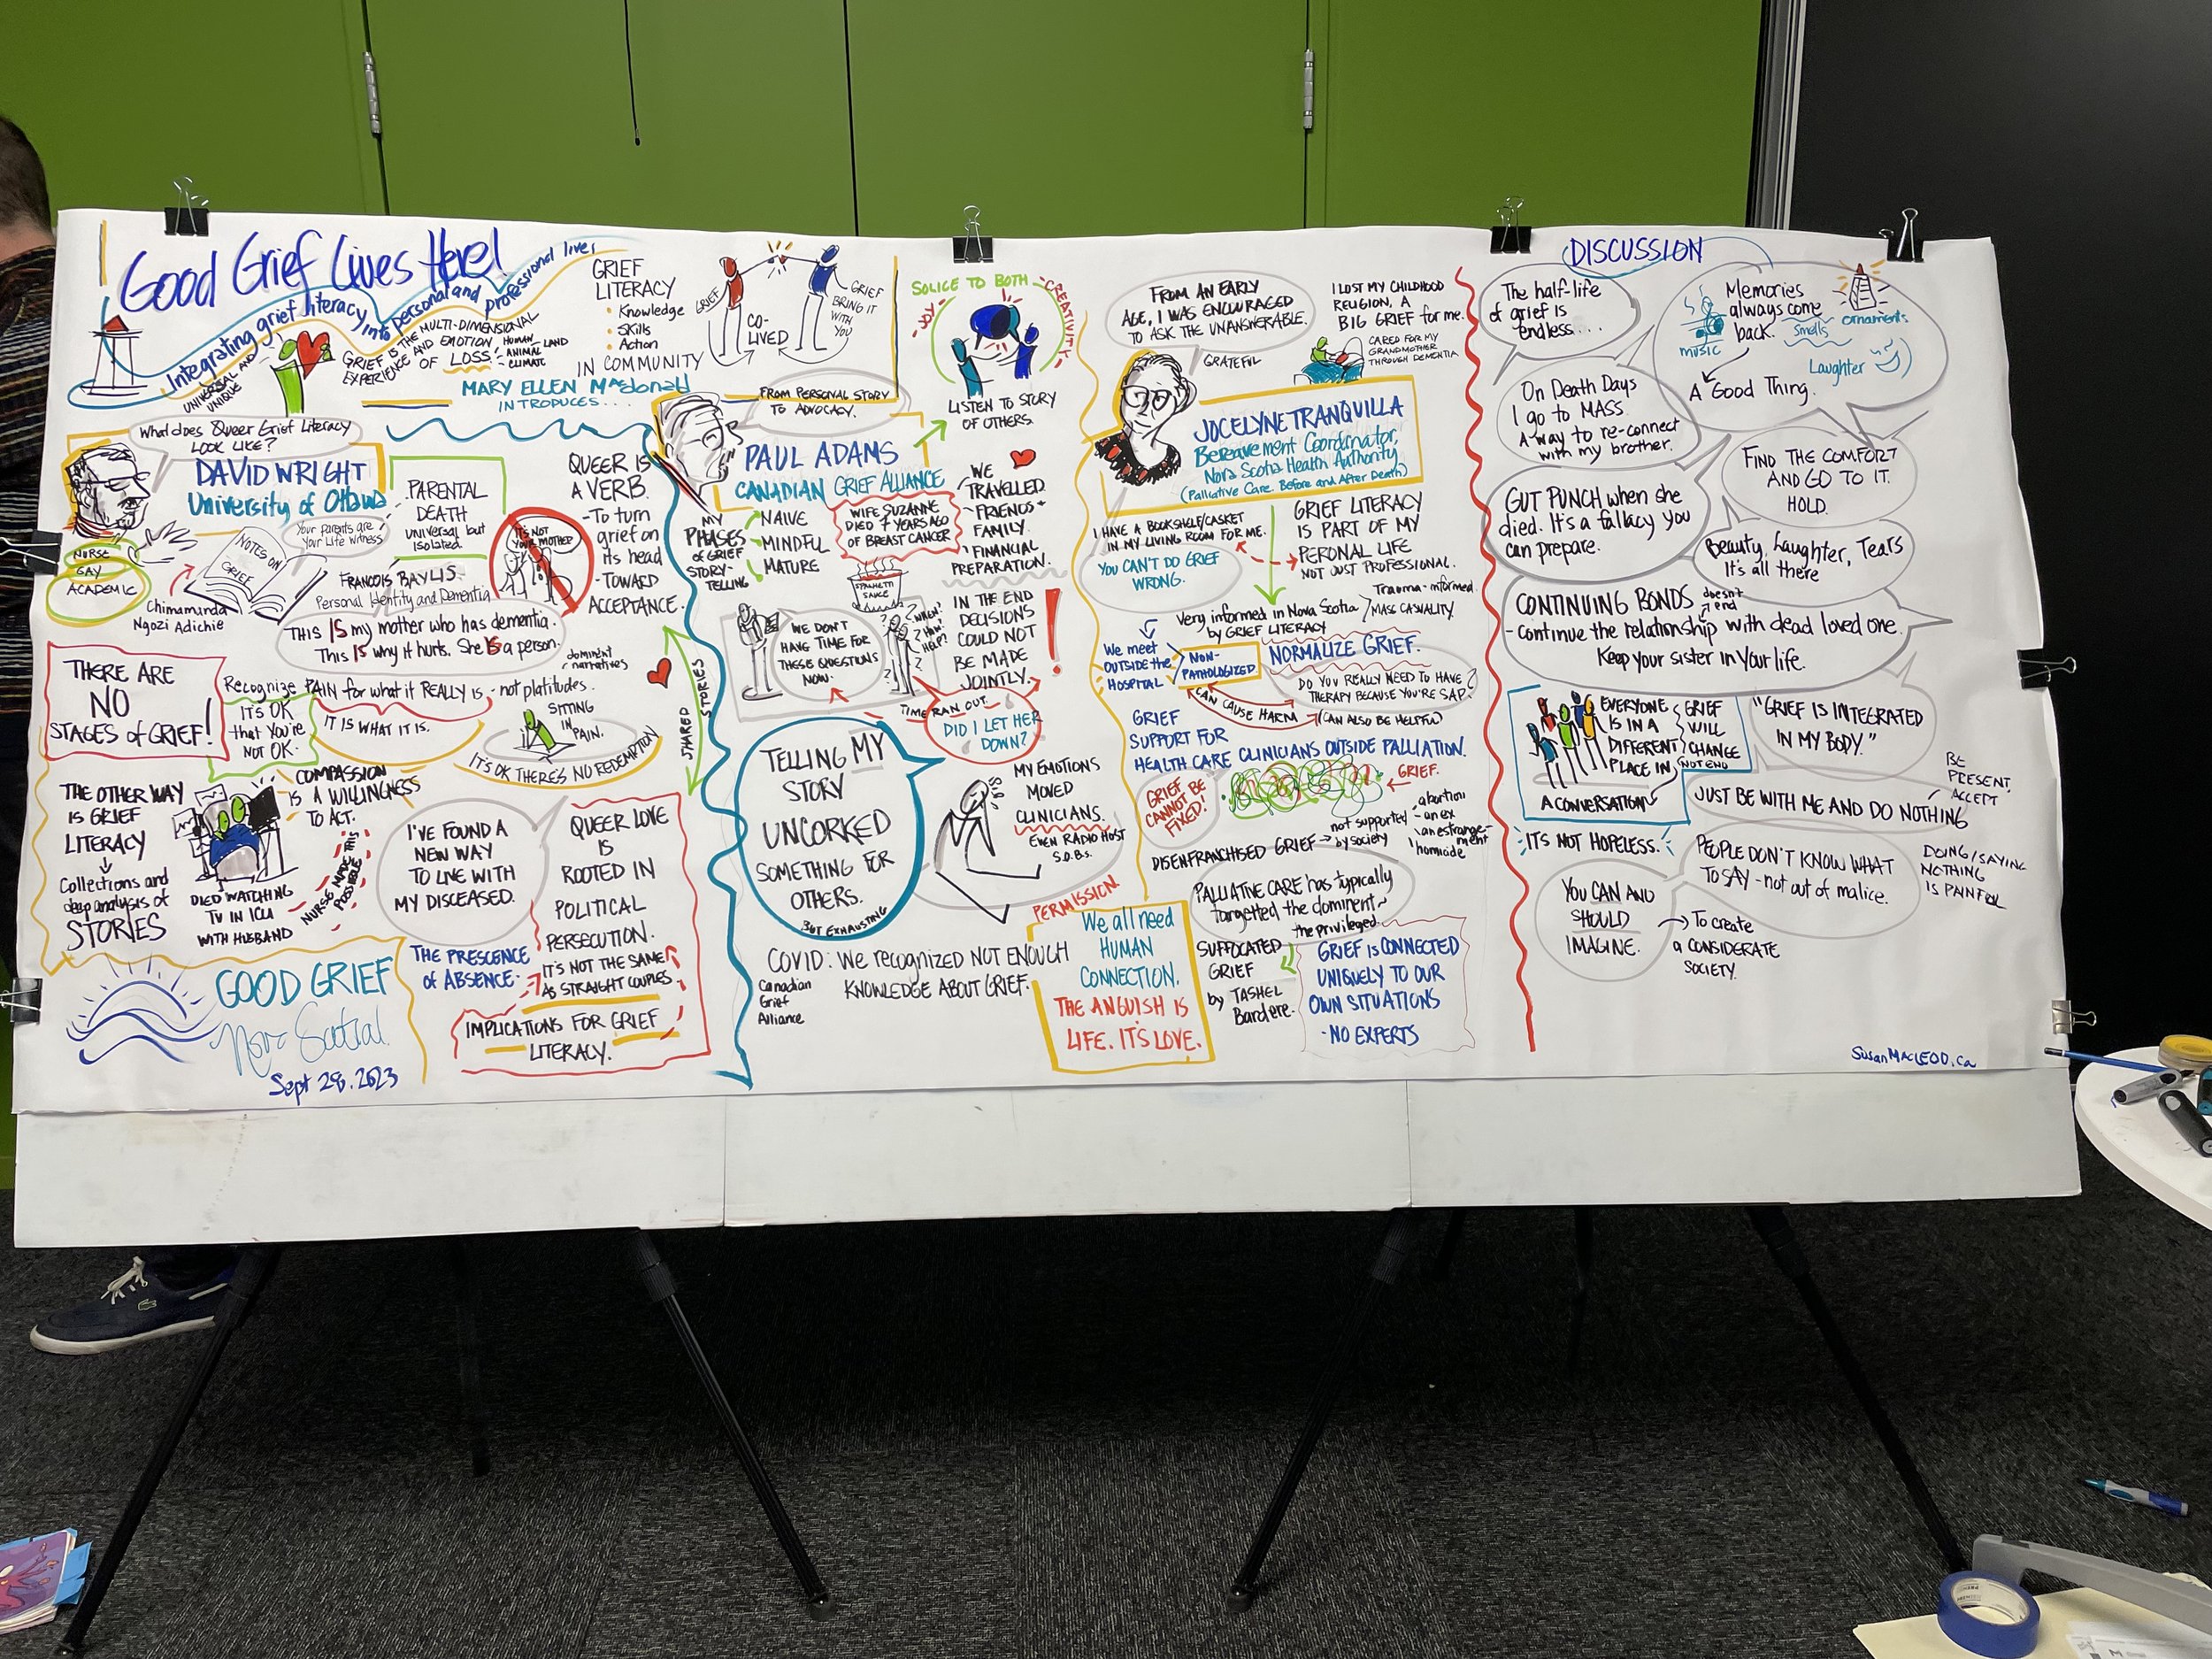 Good Grief Lives Here!
Integrating grief literacy into personal and professional lives
UNIVERSAL AND
UNIQUE
GRIEF IS THE MULTI-DIMENSIONAL
EXPERIENCE AND EMOTION
OF LOSS
HUMAN
ANIMAL
CLIMATE
LAND
GRIEF
LITERACY
• Knowledge
• Skills
• Action
IN COMMUNITY
MARY ELLEN MacDonald
INTRODUCES....
GRIEF
CO-
LIVED
GRIEF
BRING IT
WITH
YOU
What does Queer Grief Literacy
LOOK LIKE?
DAVID WRIGHT
University of Ottawa
NURSE
GAY
ACADEMIC
NOTES ON
GRIEF
Chimamanda
Ngozi Adichie
Your parents are
your life witness
PARENTAL
DEATH
universal but
isolated.
FRANCOIS BAYLIS
Personal Identity and Dementia
IT'S NOT
YOUR MOTHER
THIS IS my mother who has dementia.
This IS why it hurts. She IS a person.
QUEER IS
A VERB.
-To turn
grief on
its head
-TOWARD
ACCEPTANCE.
THERE ARE
NO
STAGES of GRIEF!
dominent
narratives
Recognize PAIN for what it REALLY is - not platitudes.
IT'S OK
that You're
NOT OK.
IT IS WHAT IT IS.
SITTING
IN
PAIN.
IT'S OK THERE'S NO REDEMPTION
SHARED
STORIES
THE OTHER WAY
IS GRIEF
LITERACY
Collections and
deep analysis of
STORIES
COMPASSION
IS A WILLINGNESS
TO ACT.
DIED WATCHING
TV IN ICU
WITH HUSBAND
NURSE MADE THIS
POSSIBLE
I'VE FOUND A
NEW WAY
TO LIVE WITH
MY DISCEASED.
THE PRESCENCE
OF ABSENCE.
QUEER LOVE
IS
ROOTED IN
POLITICAL
PERSECUTION.
IT'S NOT THE SAME
AS STRAIGHT COUPLES
IMPLICATIONS FOR GRIEF
LITERACY.
GOOD GRIEF
Nova Scotia!
Sept 28, 2023
FROM PERSONAL STORY
TO ADVOCACY.
PAUL ADAMS
CANADIAN GRIEF ALLIANCE
SOLICE TO BOTH
JOY
CREATIVITY
LISTEN TO STORY
OF OTHERS.
MY
PHASES
OF GRIEF
STORY-
TELLING
NAIVE
MINDFUL
MATURE
WIFE SUZANNE
DIED 7 YEARS AGO
OF BREAST CANCER
WE
TRAVELLED.
FRIENDS +
FAMILY.
FINANCIAL
PREPARATION.
SPAGHETTI
SAUCE
WE DON'T
HAVE TIME FOR
THESE QUESTIONS
NOW.
WHEN?
HOW?
HELP?
IN THE END
DECISIONS
COULD NOT
BE MADE
JOINTLY.
!
TIME RAN OUT.
DID I LET HER
DOWN?
TELLING MY
STORY
UNCORKED
SOMETHING FOR
OTHERS.
BUT EXHAUSTING
MY EMOTIONS
MOVED
CLINICIANS.
EVEN RADIO HOST
S.O.B.s.
COVID: We recognized NOT ENOUGH
KNOWLEDGE ABOUT GRIEF.
Canadian
Grief
Alliance
PERMISSION.
We all need
HUMAN
CONNECTION.
THE ANGUISH IS
LIFE. IT'S LOVE.
FROM AN EARLY
AGE, I WAS ENCOURAGED
TO ASK THE UNANSWERABLE.
GRATEFUL
I LOST MY CHILDHOOD
RELIGION, A
BIG GRIEF for me.
CARED FOR MY
GRANDMOTHER
THROUGH DEMENTIA
JOCELYNE TRANQUILLA
Bereavement Coordinator,
Nova Scotia Health Authority
(Palliative Care. Before and After Death)
I HAVE A BOOKSHELF/CASKET
IN MY LIVING ROOM FOR ME.
YOU CAN'T DO GRIEF
WRONG.
GRIEF LITERACY
IS PART OF MY
PERONAL LIFE
NOT JUST PROFESSIONAL.
Trauma-informed
Very informed in Nova Scotia
by GRIEF LITERACY
MASS CASUALITY.
We meet
OUTSIDE the
HOSPITAL
NON-
PATHOLOGIZED
NORMALIZE GRIEF.
DO YOU REALLY NEED TO HAVE
THERAPY BECAUSE YOU'RE SAD?
CAN CAUSE HARM
(CAN ALSO BE HELPFUL)
GRIEF
SUPPORT FOR
HEALTH CARE CLINICIANS OUTSIDE PALLIATION.
GRIEF
CANNOT BE
FIXED!
GRIEF.
DISENFRANCHISED GRIEF
not supported
by society
-abortion
-an ex
an estrange-
ment
homicide
PALLIATIVE CARE has typically
targetted the dominent
the privileged.
SUFFOCATED
GRIEF
by TASHEL
Bardere.
GRIEF IS CONNECTED
UNIQUELY TO OUR
OWN SITUATIONS
-NO EXPERTS
DISCUSSION
The half-life
of grief is
endless...
Memories
always come
back.
music
smells
ornaments
Laughter
A Good Thing.
On Death Days
I go to MASS.
A way to re-connect
with my brother.
FIND THE COMFORT
AND GO TO IT.
HOLD.
GUT PUNCH when she
died. It's a fallacy you
can prepare.
Beauty, Laughter, Tears
It's all there
CONTINUING BONDS
doesn't
end
-Continue the relationship with dead loved one.
Keep your sister in your life.
EVERYONE
IS IN A
DIFFERENT
PLACE IN
A CONVERSATION
GRIEF
WILL
CHANGE
NOT END
"GRIEF IS INTEGRATED
IN MY BODY."
BE
PRESENT,
ACCEPT
JUST BE WITH ME AND DO NOTHING
IT'S NOT HOPELESS.
PEOPLE DON'T KNOW WHAT
TO SAY - not out of malice.
DOING/SAYING
NOTHING
IS PAINFUL
YOU CAN AND
SHOULD
IMAGINE.
To create
a CONSIDERATE
SOCIETY.
SusanMacLEOD.ca